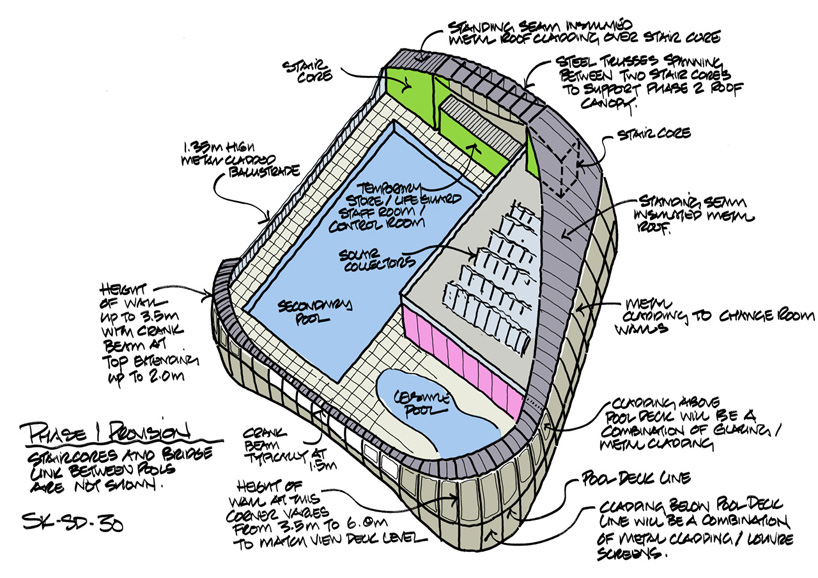 STANDING SEAM INSULATED
METAL ROOF CLADDING OVER STAIR CORE
STAIR
CORE
STEEL TRUSSES SPANNING
BETWEEN TWO STAIR CORES
TO SUPPORT PHASE 2 ROOF
CANOPY.
STAIR CORE
1.35M HIGH
METAL CLADDED
BALUSTRADE
TEMPORARY
STORE / LIFE GUARD
STAFF ROOM /
CONTROL ROOM
STANDING SEAM
INSULATED METAL
ROOF.
SOLAR
COLLECTORS
HEIGHT
OF WALL
UP TO 3.5M
WITH CRANK
BEAM AT
TOP EXTENDING
UP TO 2.0M
SECONDARY
POOL
METAL
CLADDING TO CHANGE ROOM
WALLS
LEISURE
POOL
CLADDING ABOVE
POOL DECK WILL BE A
COMBINATION OF GLAZING /
METAL CLADDING
PHASE 1 PROVISION
STAIRCORES AND BRIDGE
LINK BETWEEN POOLS
ARE NOT SHOWN.
SK-SD-30
CRANK
BEAM
TYPICALLY AT
1.5M
HEIGHT OF
WALL AT THIS
CORNER VARIES
FROM 3.5M TO 6.0M
TO MATCH VIEW DECK LEVEL
POOL DECK LINE
CLADDING BELOW POOL DECK
LINE WILL BE A COMBINATION
OF METAL CLADDING / LOUVRE
SCREENS.